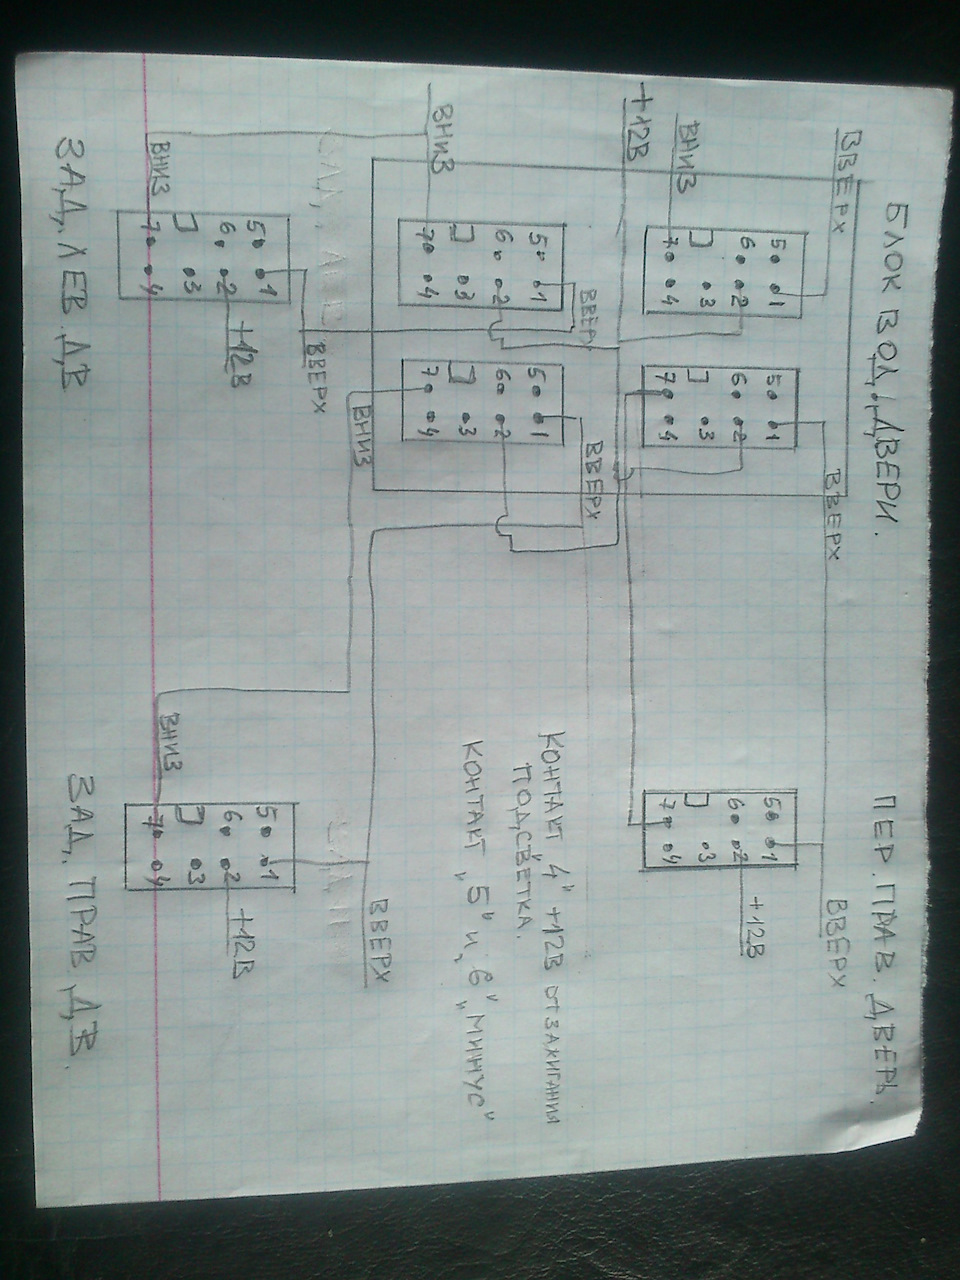 БЛОК ВОД. ДВЕРИ. ПЕР. ПРАВ. ДВЕРЬ.
ВВЕРХ ВВЕРХ ВВЕРХ
5 1 5 1 5 1
6 2 6 2 6 2 +12В
3 3 3
7 4 7 4 7 4
ВНИЗ
+12В
ВВЕР ВВЕРХ
КОНТАКТ „4" +12В от ЗАЖИГАНИЯ
ПОДСВЕТКА.
КОНТАКТ „5" и „6" „МИНУС"
5 1 5 1
6 2 6 2
3 3
7 4 7 4
ВНИЗ
ВНИЗ ВВЕРХ
ВВЕРХ
5 1 5 1
6 2 +12В 6 2 +12В
3 3
7 4 7 4
ВНИЗ ВНИЗ
ЗАД. ЛЕВ. ДВ ЗАД. ПРАВ. ДВ.